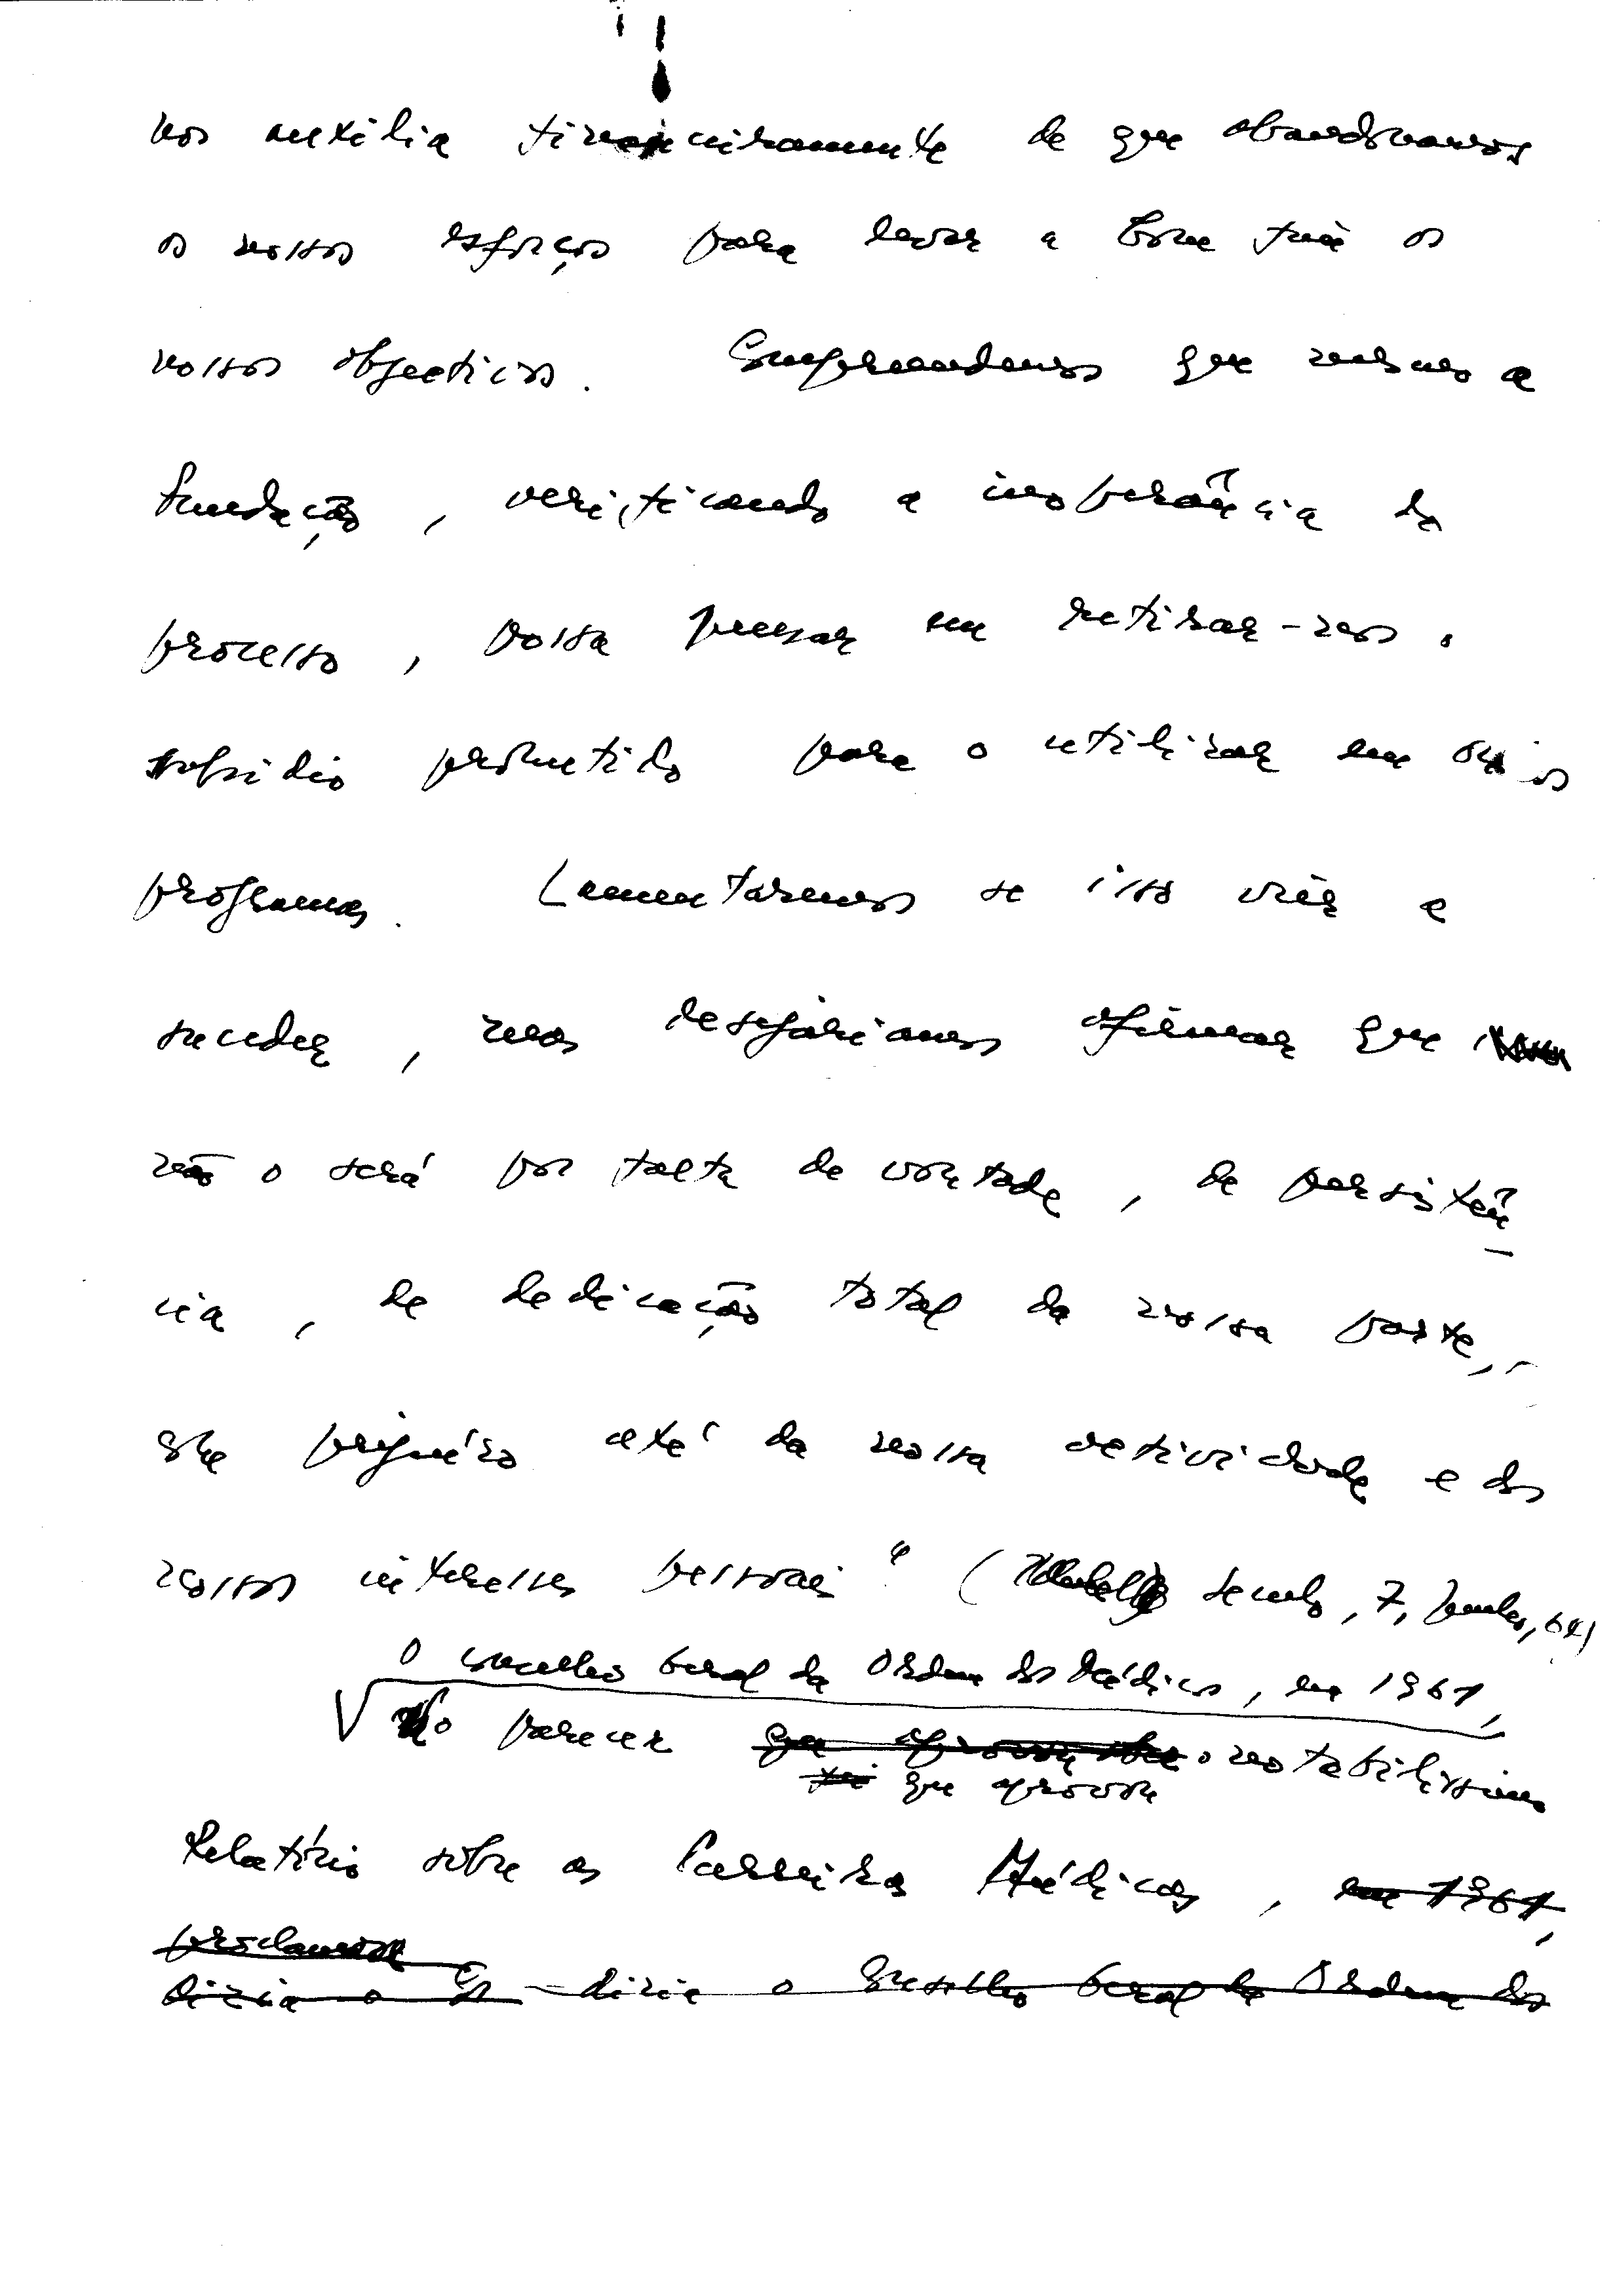 nos auxilia financeiramente de que abandonamos
os nossos esforços para levar a bom fim os
nossos objectivos. Compreendemos que mesmo a
Fundação, verificando a inoperância do
processo, possa pensar em retirar-nos o
subsídio prometido para o utilizar em outros
programas. Lamentaremos se isso vier a
suceder, mas desejaríamos afirmar que
não o será por falta de vontade, de persistên
cia, de dedicação total da nossa parte,
com prejuízo até da nossa actividade e dos
nossos interesses pessoais" (Seculo, 7, Junho, 64)
O conselho Geral da Ordem dos Médicos, em 1961,
no parecer que aprovou o notabilíssimo
que aprovou
Relatório sobre as Carreiras Médicas, em 1961,
proclamou
dizia o Co - dizia o Conselho Geral da Ordem dos